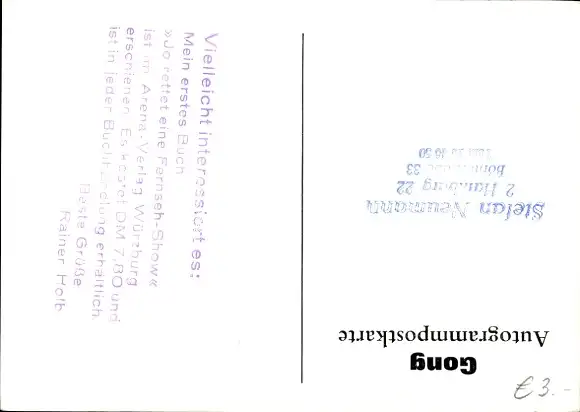 Vielleicht interessiert es:
Mein erstes Buch
»Jo rettet eine Fernseh-Show«
ist im Arena-Verlag Würzburg
erschienen. Es kostet DM 7,80 und
ist in jeder Buchhandlung erhältlich.
Beste Grüße
Rainer Holb
Gong
Autogrammpostkarte
Stefan Neumann
2 Hamburg 22
33
€ 3.-